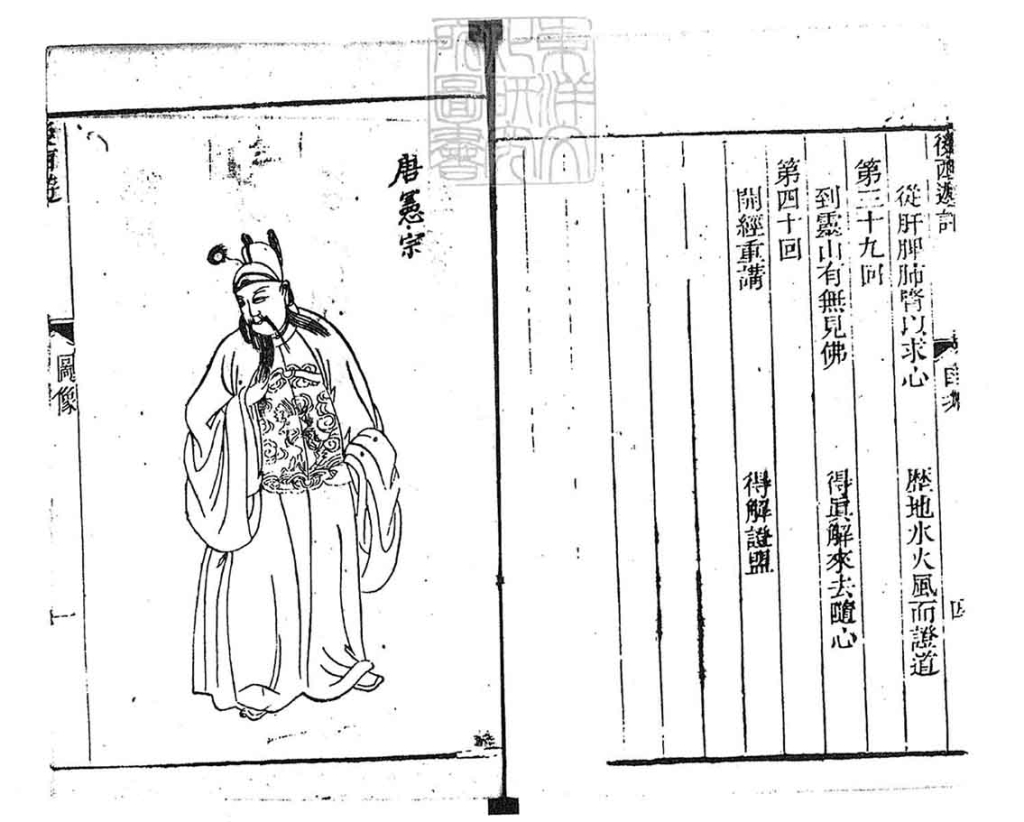 後西遊記
從肝脾肺腎以求心　歷地水火風而證道
第三十九回
到靈山有無見佛　得眞解來去隨心
第四十回
開經重講　得解證盟
目次
四
唐憲宗
後西遊
圖像